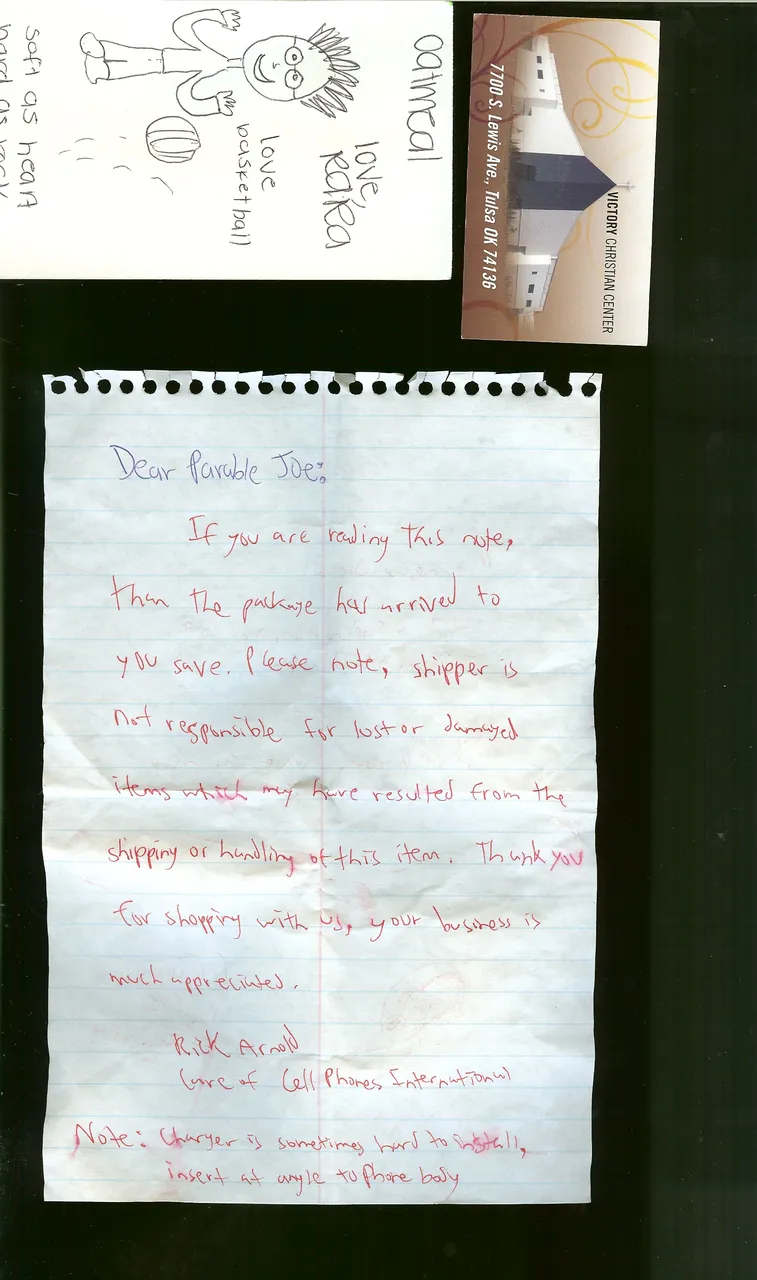 oatmeal
love,
RaRa
love
basketball
soft as heart
hard as rock
VICTORY CHRISTIAN CENTER
7700 S. Lewis Ave., Tulsa OK 74136
Dear Parable Joe:
If you are reading this note,
than the package has arrived to
you save. Please note, shipper is
not responsible for lost or damaged
items which may have resulted from the
shipping or handling of this item. Thank you
for shopping with us, your business is
much appreciated.
Rick Arnold
Care of Cell Phones International
Note: Charger is sometimes hard to install,
insert at angle to phone body